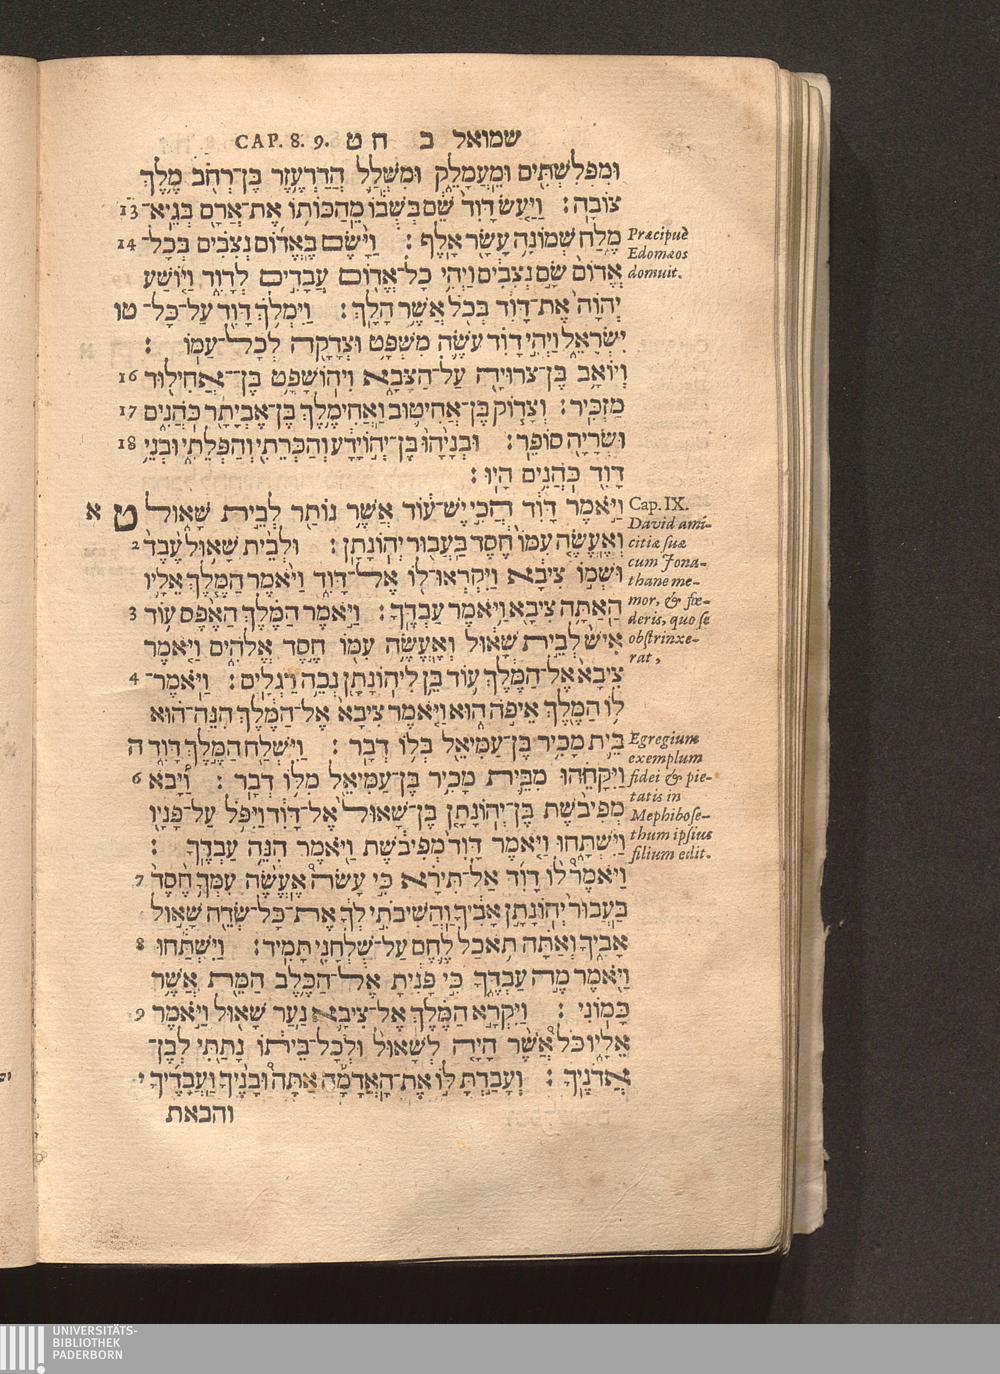 CAP. 8. 9. שמואל ב ח ט
וּמִפְּלִשְׁתִּים וּמֵעֲמָלֵק וּמִשְּׁלַל הֲדַדְעֶזֶר בֶּן־רְחֹב מֶלֶךְ
צוֹבָה׃ וַיַּעַשׂ דָּוִד שֵׁם בְּשֻׁבוֹ מֵהַכּוֹתוֹ אֶת־אֲרָם בְּגֵיא־ 13
מֶלַח שְׁמוֹנָה עָשָׂר אָלֶף׃ וַיָּשֶׂם בֶּאֱדוֹם נְצִבִים בְּכָל־ 14
אֱדוֹם שָׂם נְצִבִים וַיְהִי כָל־אֱדוֹם עֲבָדִים לְדָוִד וַיּוֹשַׁע
יְהֹוָה אֶת־דָּוִד בְּכֹל אֲשֶׁר הָלָךְ׃ וַיִּמְלֹךְ דָּוִד עַל־כָּל־ טו
יִשְׂרָאֵל וַיְהִי דָוִד עֹשֶׂה מִשְׁפָּט וּצְדָקָה לְכָל־עַמּוֹ׃
וְיוֹאָב בֶּן־צְרוּיָה עַל־הַצָּבָא וִיהוֹשָׁפָט בֶּן־אֲחִילוּד 16
מַזְכִּיר׃ וְצָדוֹק בֶּן־אֲחִיטוּב וַאֲחִימֶלֶךְ בֶּן־אֶבְיָתָר כֹּהֲנִים 17
וּשְׂרָיָה סוֹפֵר׃ וּבְנָיָהוּ בֶּן־יְהוֹיָדָע וְהַכְּרֵתִי וְהַפְּלֵתִי וּבְנֵי 18
דָוִד כֹּהֲנִים הָיוּ׃
וַיֹּאמֶר דָּוִד הֲכִי יֶשׁ־עוֹד אֲשֶׁר נוֹתַר לְבֵית שָׁאוּל ט א
וְאֶעֱשֶׂה עִמּוֹ חֶסֶד בַּעֲבוּר יְהוֹנָתָן׃ וּלְבֵית שָׁאוּל עֶבֶד 2
וּשְׁמוֹ צִיבָא וַיִּקְרְאוּ־לוֹ אֶל־דָּוִד וַיֹּאמֶר הַמֶּלֶךְ אֵלָיו
הַאַתָּה צִיבָא וַיֹּאמֶר עַבְדֶּךָ׃ וַיֹּאמֶר הַמֶּלֶךְ הַאֶפֶס עוֹד 3
אִישׁ לְבֵית שָׁאוּל וְאֶעֱשֶׂה עִמּוֹ חֶסֶד אֱלֹהִים וַיֹּאמֶר
צִיבָא אֶל־הַמֶּלֶךְ עוֹד בֵּן לִיהוֹנָתָן נְכֵה רַגְלָיִם׃ וַיֹּאמֶר־ 4
לוֹ הַמֶּלֶךְ אֵיפֹה הוּא וַיֹּאמֶר צִיבָא אֶל־הַמֶּלֶךְ הִנֵּה־הוּא
בֵּית מָכִיר בֶּן־עַמִּיאֵל בְּלוֹ דְבָר׃ וַיִּשְׁלַח הַמֶּלֶךְ דָּוִד ה
וַיִּקָּחֵהוּ מִבֵּית מָכִיר בֶּן־עַמִּיאֵל מִלּוֹ דְבָר׃ וַיָּבֹא 6
מְפִיבֹשֶׁת בֶּן־יְהוֹנָתָן בֶּן־שָׁאוּל אֶל־דָּוִד וַיִּפֹּל עַל־פָּנָיו
וַיִּשְׁתָּחוּ וַיֹּאמֶר דָּוִד מְפִיבֹשֶׁת וַיֹּאמֶר הִנֵּה עַבְדֶּךָ׃
וַיֹּאמֶר לוֹ דָוִד אַל־תִּירָא כִּי עָשֹׂה אֶעֱשֶׂה עִמְּךָ חֶסֶד 7
בַּעֲבוּר יְהוֹנָתָן אָבִיךָ וַהֲשִׁיבֹתִי לְךָ אֶת־כָּל־שְׂדֵה שָׁאוּל
אָבִיךָ וְאַתָּה תֹּאכַל לֶחֶם עַל־שֻׁלְחָנִי תָּמִיד׃ וַיִּשְׁתַּחוּ 8
וַיֹּאמֶר מֶה עַבְדֶּךָ כִּי פָנִיתָ אֶל־הַכֶּלֶב הַמֵּת אֲשֶׁר
כָּמוֹנִי׃ וַיִּקְרָא הַמֶּלֶךְ אֶל־צִיבָא נַעַר שָׁאוּל וַיֹּאמֶר 9
אֵלָיו כֹּל אֲשֶׁר הָיָה לְשָׁאוּל וּלְכָל־בֵּיתוֹ נָתַתִּי לְבֶן־
אֲדֹנֶיךָ׃ וְעָבַדְתָּ לּוֹ אֶת־הָאֲדָמָה אַתָּה וּבָנֶיךָ וַעֲבָדֶיךָ י
והבאת
Præcipuè
Edomæos
domuit.
Cap. IX.
David ami-
citiæ suæ
cum Jona-
thane me-
mor, & fœ-
deris, quo se
obstrinxe-
rat,
Egregium
exemplum
fidei & pie-
tatis in
Mephibose-
thum ipsius
filium edit.
UNIVERSITÄTS-
BIBLIOTHEK
PADERBORN